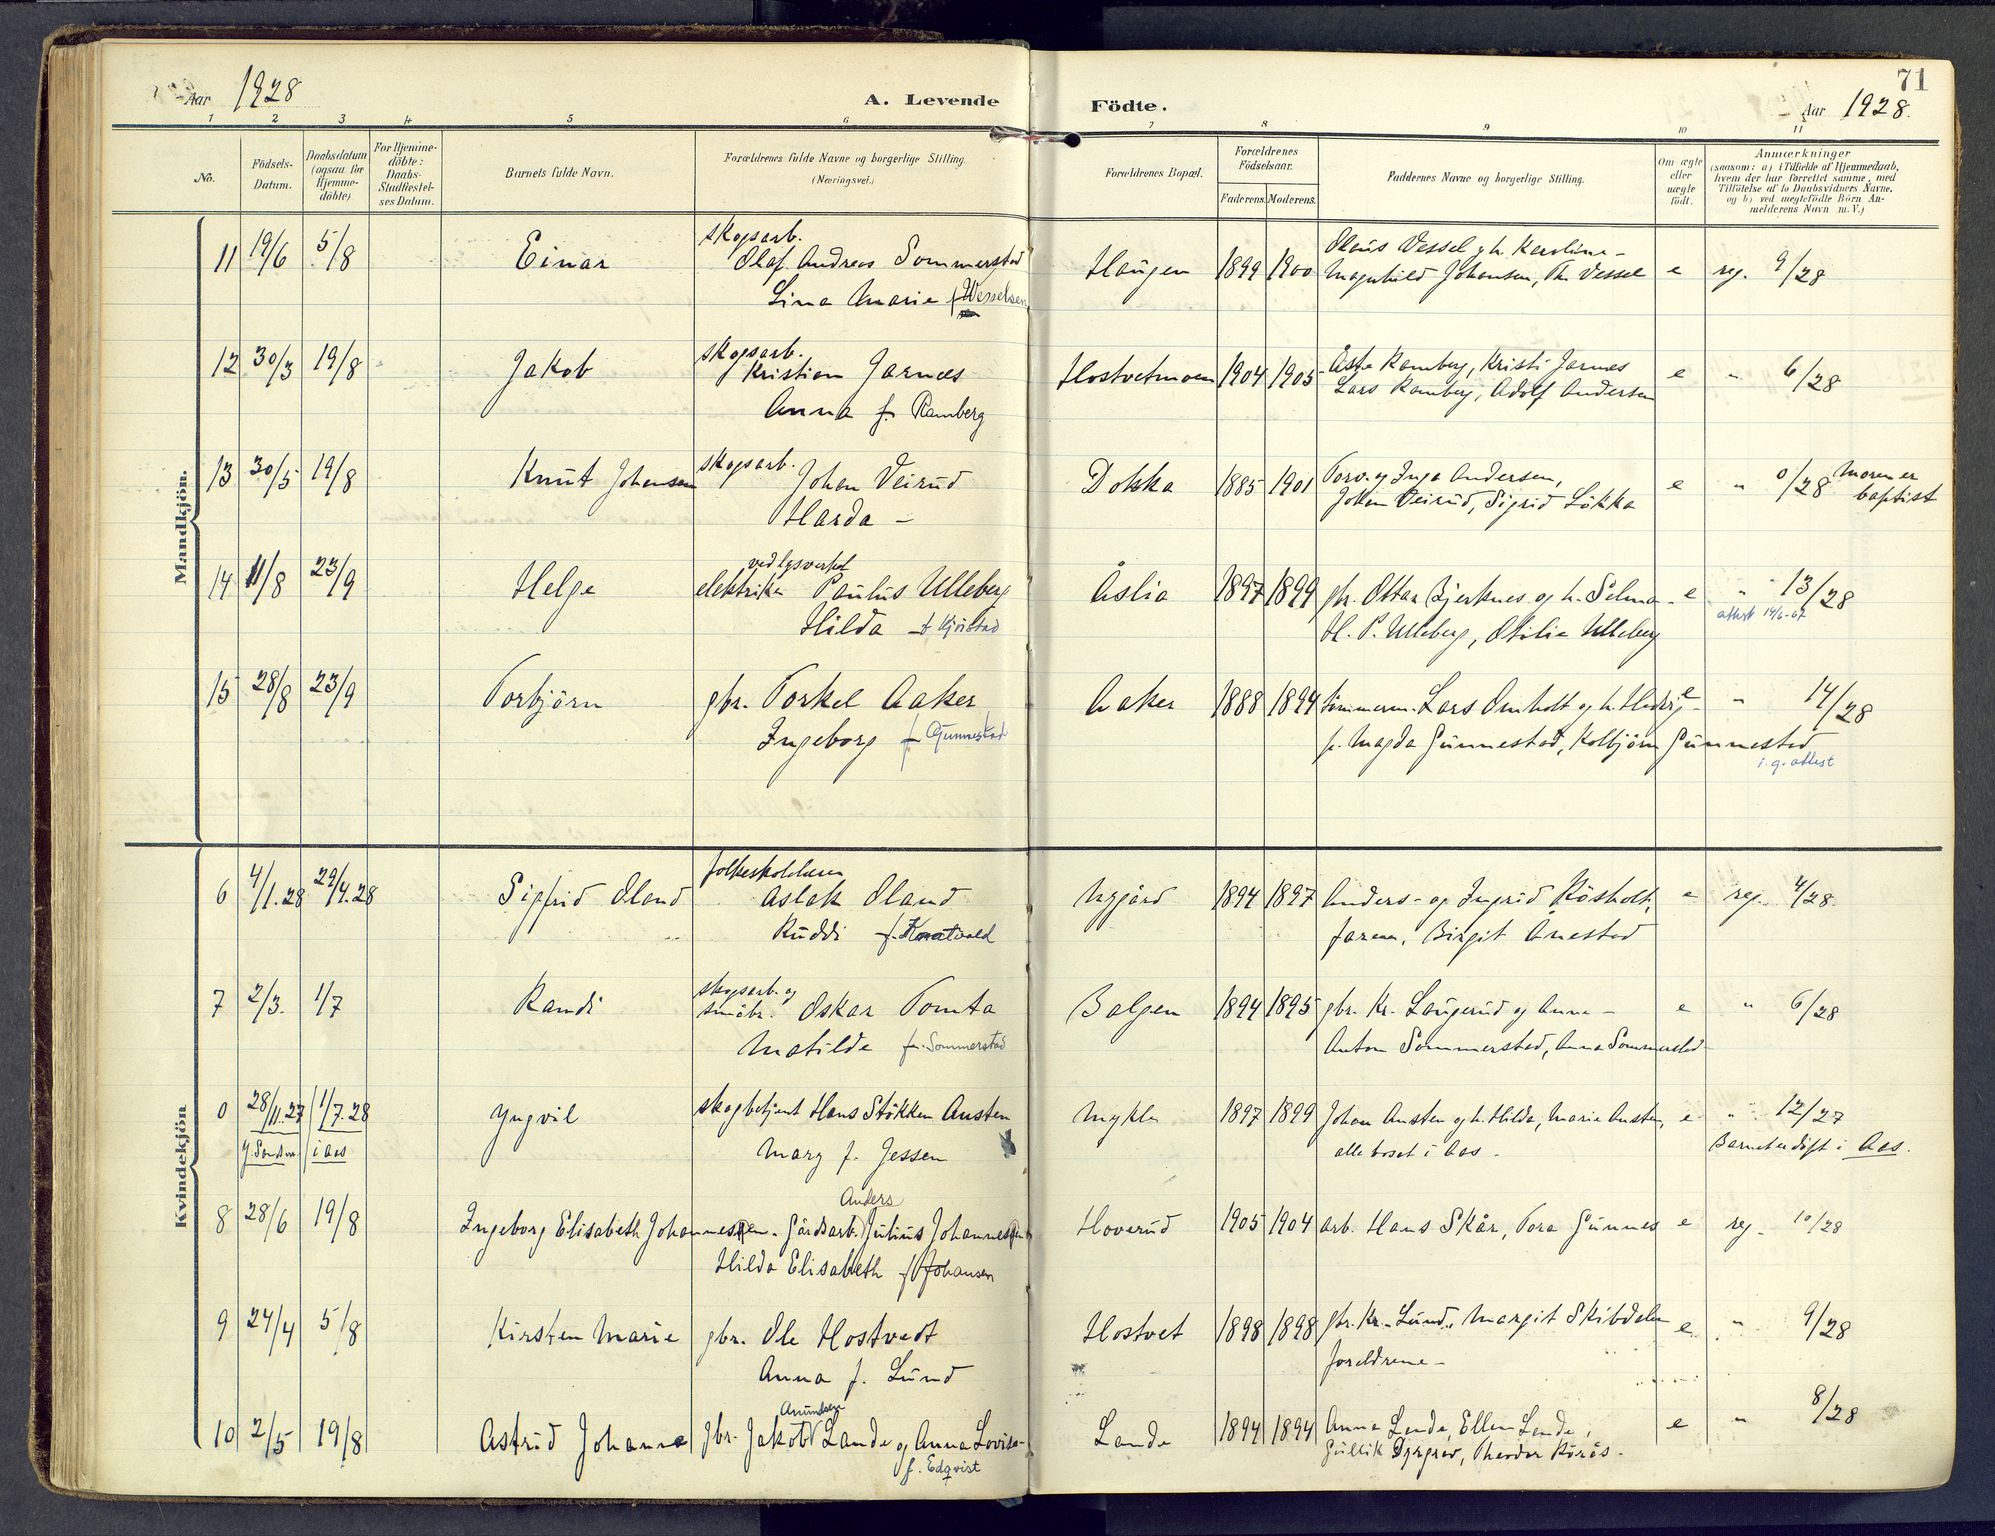 Aar 1928
A. Levende Födte.
71
Aar 1928.
1 2 3 4 5 6 7 8 9 10 11
No.
Födsels-Datum.
Daabsdatum (ogsaa for Hjemme-döbte)
For Hjemme-döbte: Daabs-Stadfæstel-ses Datum.
Barnets fulde Navn.
Forældrenes fulde Navne og borgerlige Stilling.
(Næringsvei.)
Forældrenes Bopæl.
Forældrenes Födselsaar.
Faderens. Moderens.
Faddernes Navne og borgerlige Stilling.
Om ægte eller uægte födt.
Anmærkninger
(saasom: a) i Tilfælde af Hjemmedaab,
hvem der har forrettet samme, med
Tilföielse af to Daabsvidners Navne,
og b) ved uægtefödte Börn An-
melderens Navn m. V.)
Mandkjön.
skogsarb. Olaus Vessel og h. Karoline -
11 19/6 5/8 Einar Olaf Andreas Sommerstad Haugen 1899 1900 Magnhild Johansen, Th. Vessel e reg. 9/28
Lina Marie f. Wesselsen
skogsarb. Kristi Jarnes
12 30/3 19/8 Jakob Kristian Jarnes Hostvetmoen 1904 1905 Lars Ramberg, Adolf Andersen e " 6/28
Anna f. Ramberg
skogsarb. Torv. og Inga Andersen,
13 30/5 19/8 Knut Johansen Johan Veirud Dokka 1885 1901 Johan Veirud, Sigrid Lökka e " 0/28 Moren er baptist
Harda -
ved lysverket
14 11/8 23/9 Helge elektriker Paulus Ulleberg Åslia 1897 1899 gbr. Ottar Bjerknes og h. Selma - e " 13/28
Hilda f. Kjöistad H. P. Ulleberg, Otilie Ulleberg attest 14/6-67
15 28/8 23/9 Torbjörn gbr. Torkel Aaker Aaker 1888 1894 tömmerm. Lars Omholt og h. Hedvig - e " 14/28
Ingeborg f. Gunnestad f. Magda Gunnestad, Kolbjörn Gunnestad
i. g. attest
Kvindekjön
6 4/1.28 29/4.28 Sigfrid Oland Aslak Oland Nygård 1894 1897 Anders - og Ingrid Rösholt, e reg. 4/28
Ruddi f. Knatvold faren, Birgit Ånestad
skogsarb. og
7 2/3. 1/7 Randi småbr. Oskar Tomta Bolgen 1894 1895 gbr. Kr. Laugerud og Anna - e " 6/28
Matilde f. Sommerstad Anton Sommerstad, Anna Sommerstad
0 28/11.27 1/7.28 Yngvil skogbetjent Hans Stökken Austen Mykle 1897 1899 Johan Austen og h. Hilda, Marie Austen, e " 12/27
i Aas Mary f. Jessen alle bosat i Aas. Barnet er döpt i Aas.
Anders
8 28/6 19/8 Ingeborg Elisabeth Johannessen. Gårdsarb. Julius Johannessen Hoverud 1905 1904 arb. Hans Skår, Tora Gunnes e reg. 10/28
Hilda Elisabeth f. Johansen
9 24/4 5/8 Kirsten Marie gbr. Ole Hostvedt Hostvet 1898 1898 gbr. Kr. Lund, Margit Skibdalen e " 9/28
Anna f. Lund foreldrene -
Anundsen
10 2/5 19/8 Astrid Johanne gbr. Jakob Lande og Anna Lovise - Lande 1894 1894 Anna Lande, Ellen Lande, e " 8/28
f. Edqvist Gullik Dyrgrav, Theodor Rörås.